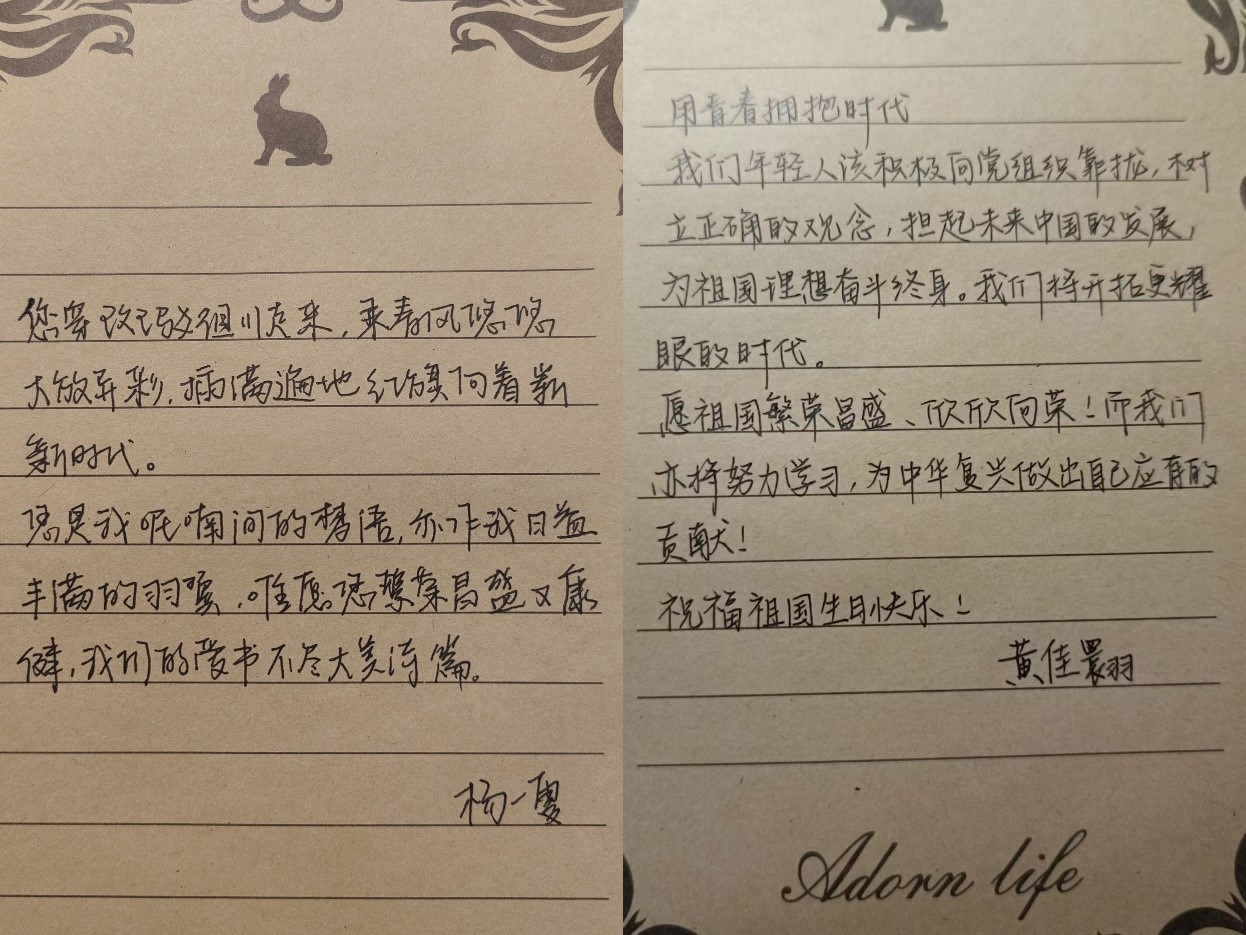 您穿 走来，乘春风悠悠
大放异彩，插满遍地红旗向着崭
新时代。
您是我呢喃间的梦语，亦作我日益
丰满的羽翼，唯愿您繁荣昌盛又康
健，我们的爱书不尽大美诗篇。
杨一夏
用青春拥抱时代
我们年轻人该积极向党组织靠拢，树
立正确的观念，担起未来中国的发展，
为祖国理想奋斗终身。我们将开拓更耀
眼的时代。
愿祖国繁荣昌盛、欣欣向荣！而我们
亦将努力学习，为中华复兴做出自己应有的
贡献！
祝福祖国生日快乐！
黄佳翾
Adorn life